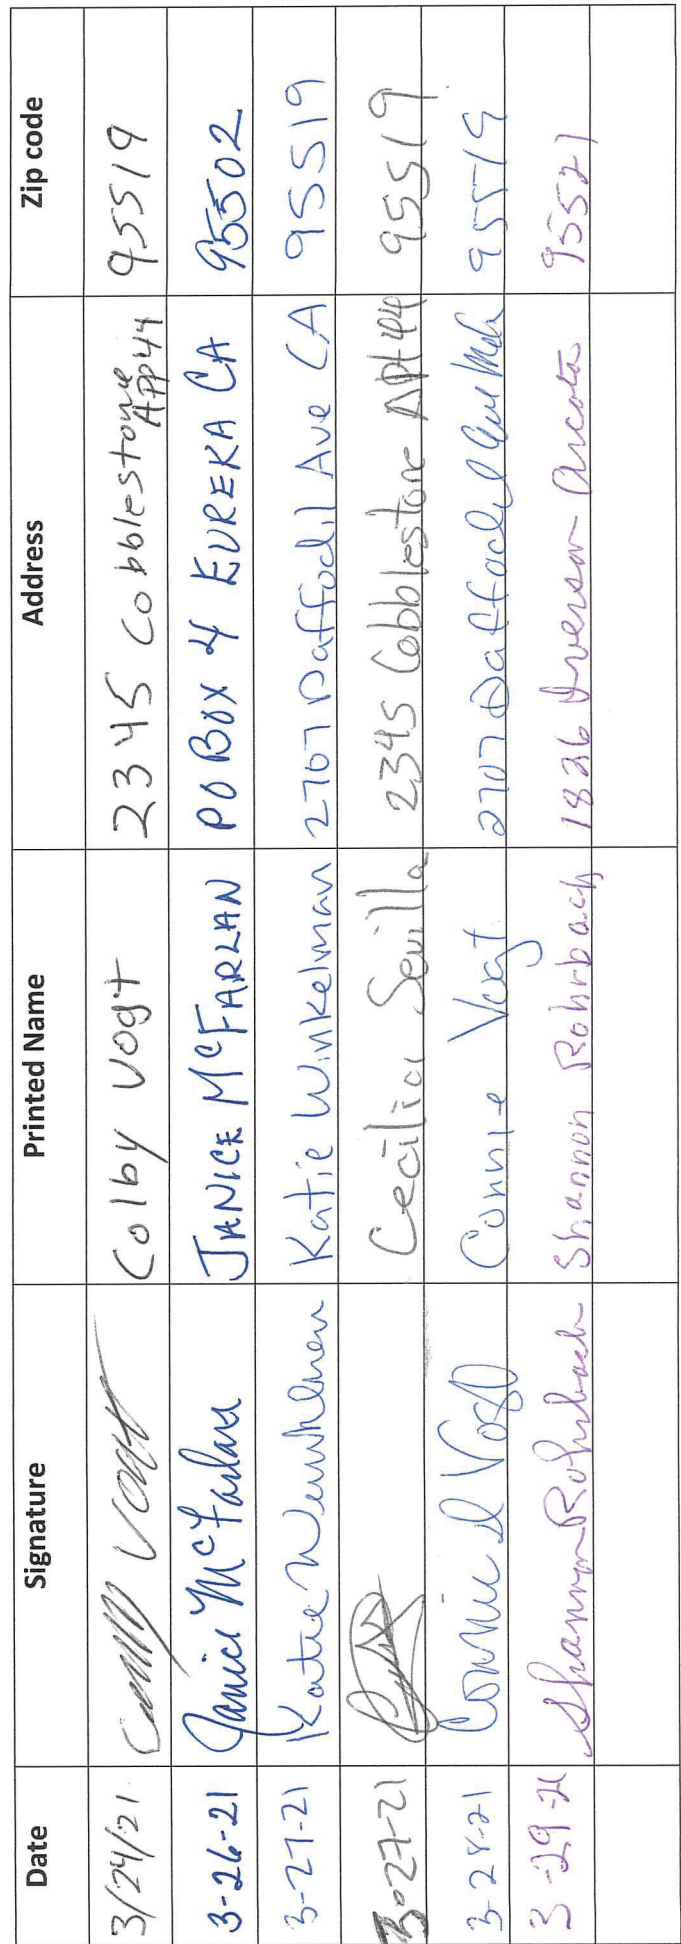 Date Signature Printed Name Address Zip code
3/24/21 Colby Vogt 2345 Cobblestone App 44 95519
3-26-21 Janice McFarlan JANICE McFARLAN PO BOX 4 EUREKA CA 95502
3-27-21 Katie Winkelman Katie Winkelman 2707 Daffodil Ave CA 95519
3-27-21 Cecilia Sevilla 2345 Cobblestone Apt 44 95519
3-28-21 Connie D Vogt Connie Vogt 2707 Daffodil Ave 95519
3-29-21 Shannon Rohrbach Shannon Rohrbach 1826 Iverson Arcata 95521